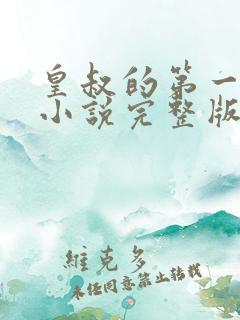 皇叔的第一
小說完整版
維克多
未经同意禁止转载